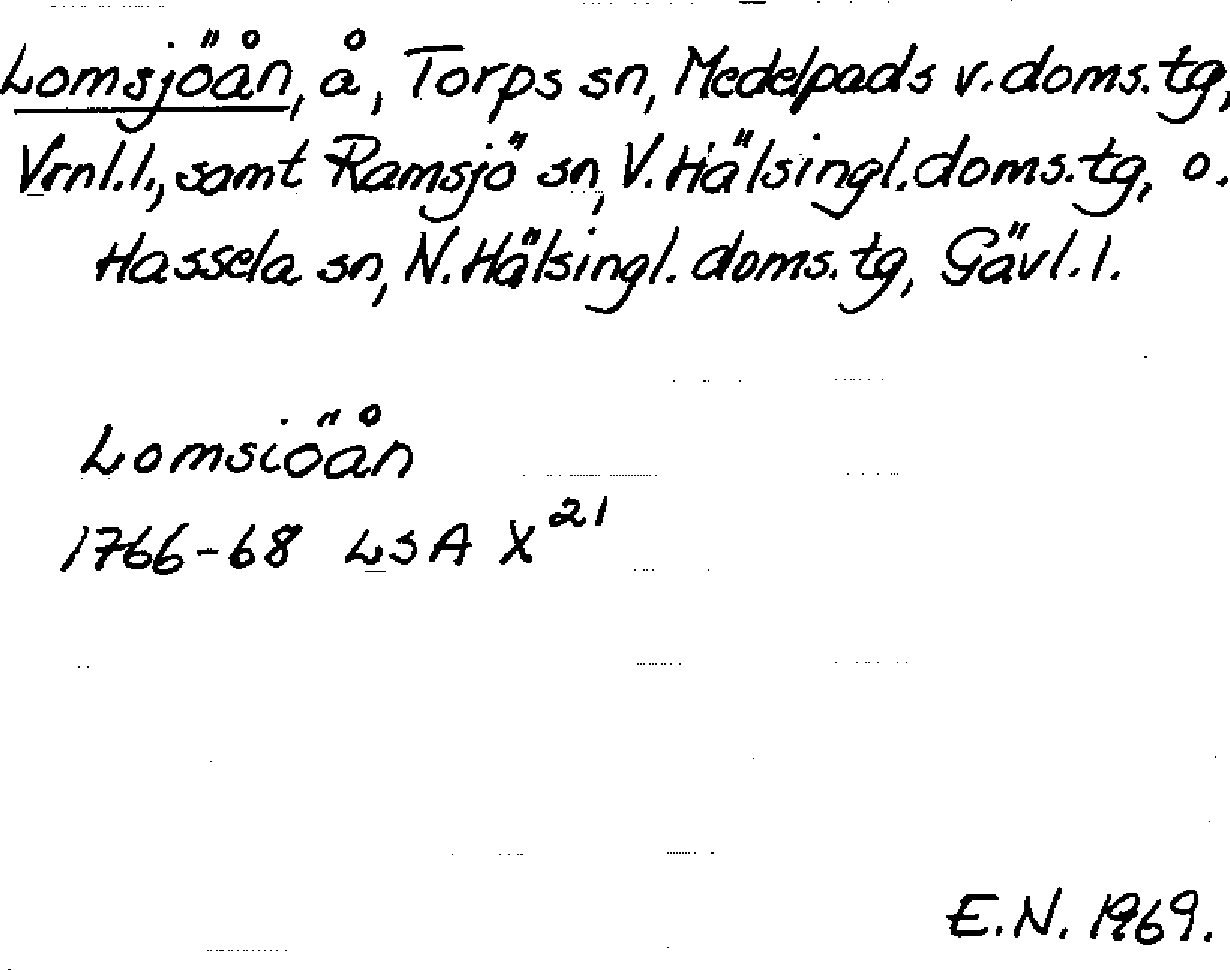 Lomsjöån, å, Torps sn, Medelpads v. doms. tg,
Vrnl. l., samt Ramsjö sn, V. Hälsingl. doms. tg, o.
Hassela sn, N. Hälsingl. doms. tg, Gävl. l.
Lomsiöån
1766-68 LSA X²¹
E.N. 1969.